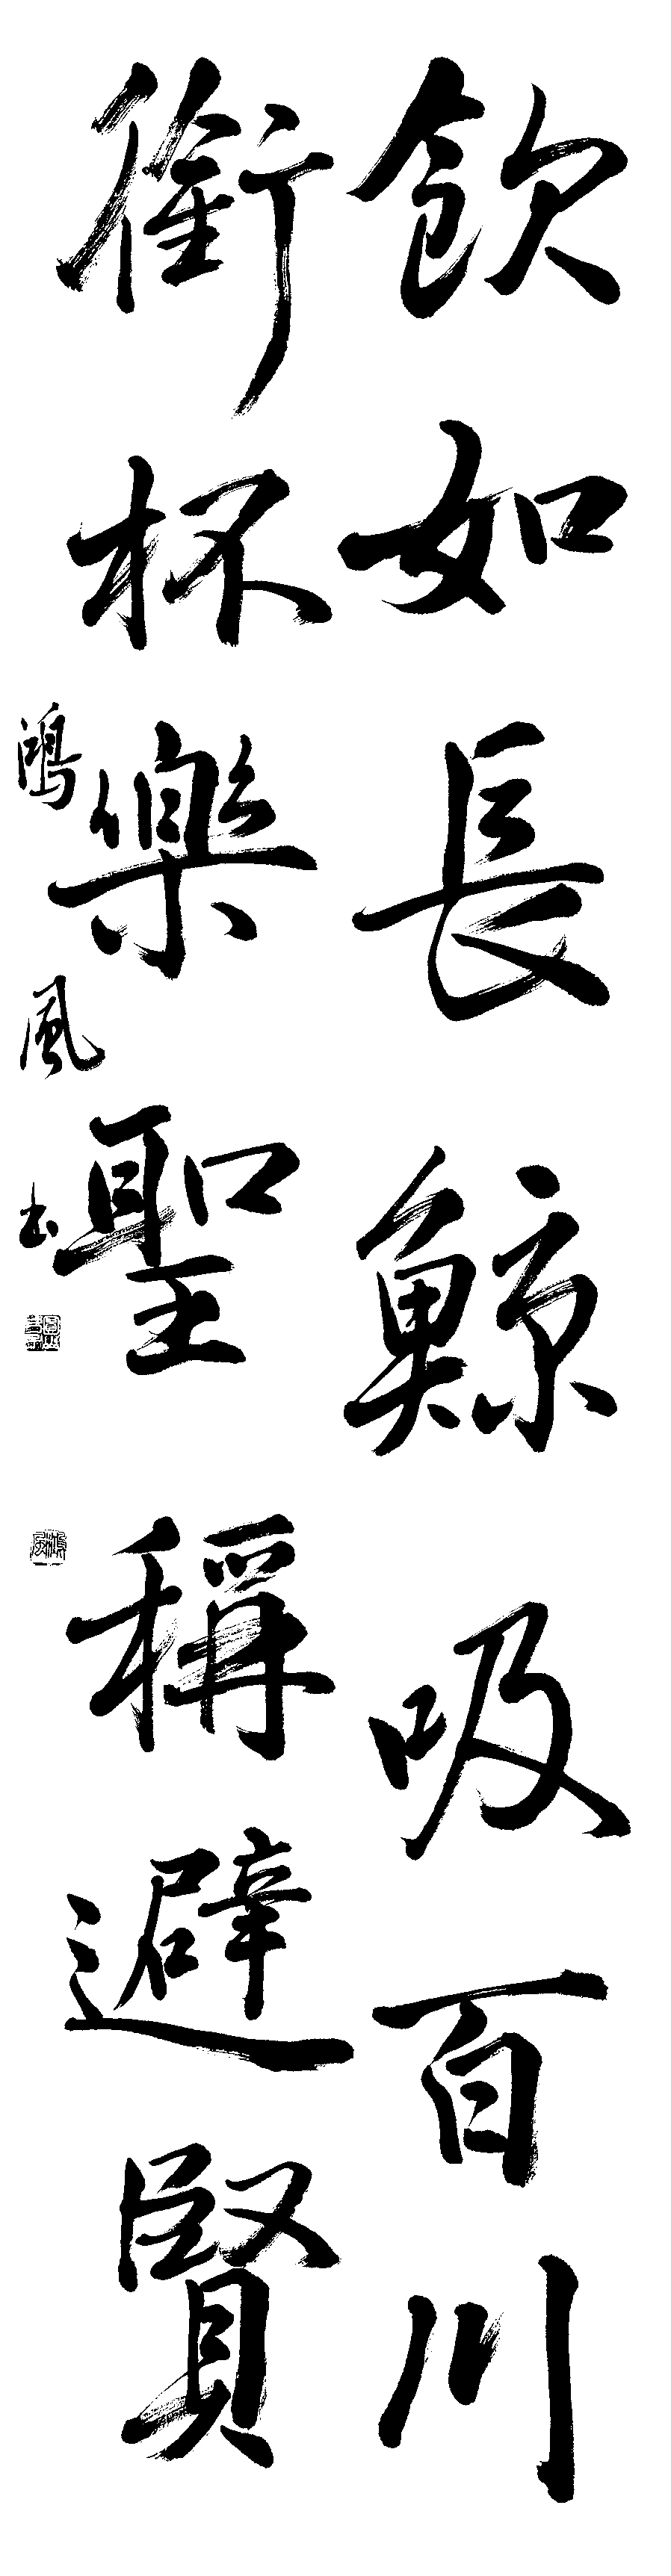 飲如長鯨吸百川
銜杯樂聖稱避賢
鴻風书